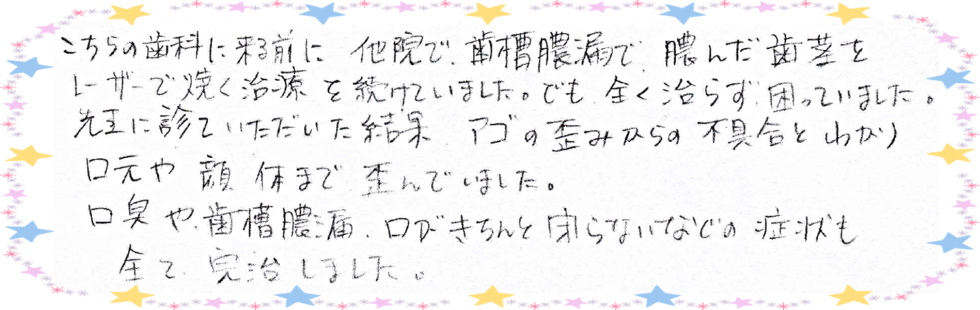 こちらの歯科に来る前に 他院で、歯槽膿漏で 膿んだ歯茎を
レーザーで焼く治療を続けていました。でも 全く治らず 困っていました。
先生に診ていただいた結果 アゴの歪みからの不具合とわかり
口元や 顔 体まで 歪んでいました。
口臭や、歯槽膿漏、口がきちんと閉らないなどの症状も
全て 完治しました。